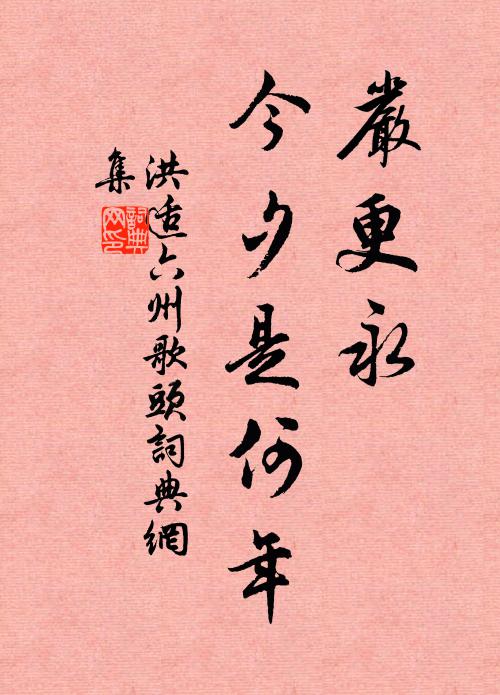 嚴更永
今夕是何年
洪适六州歌頭詞典網
集
詞典網印